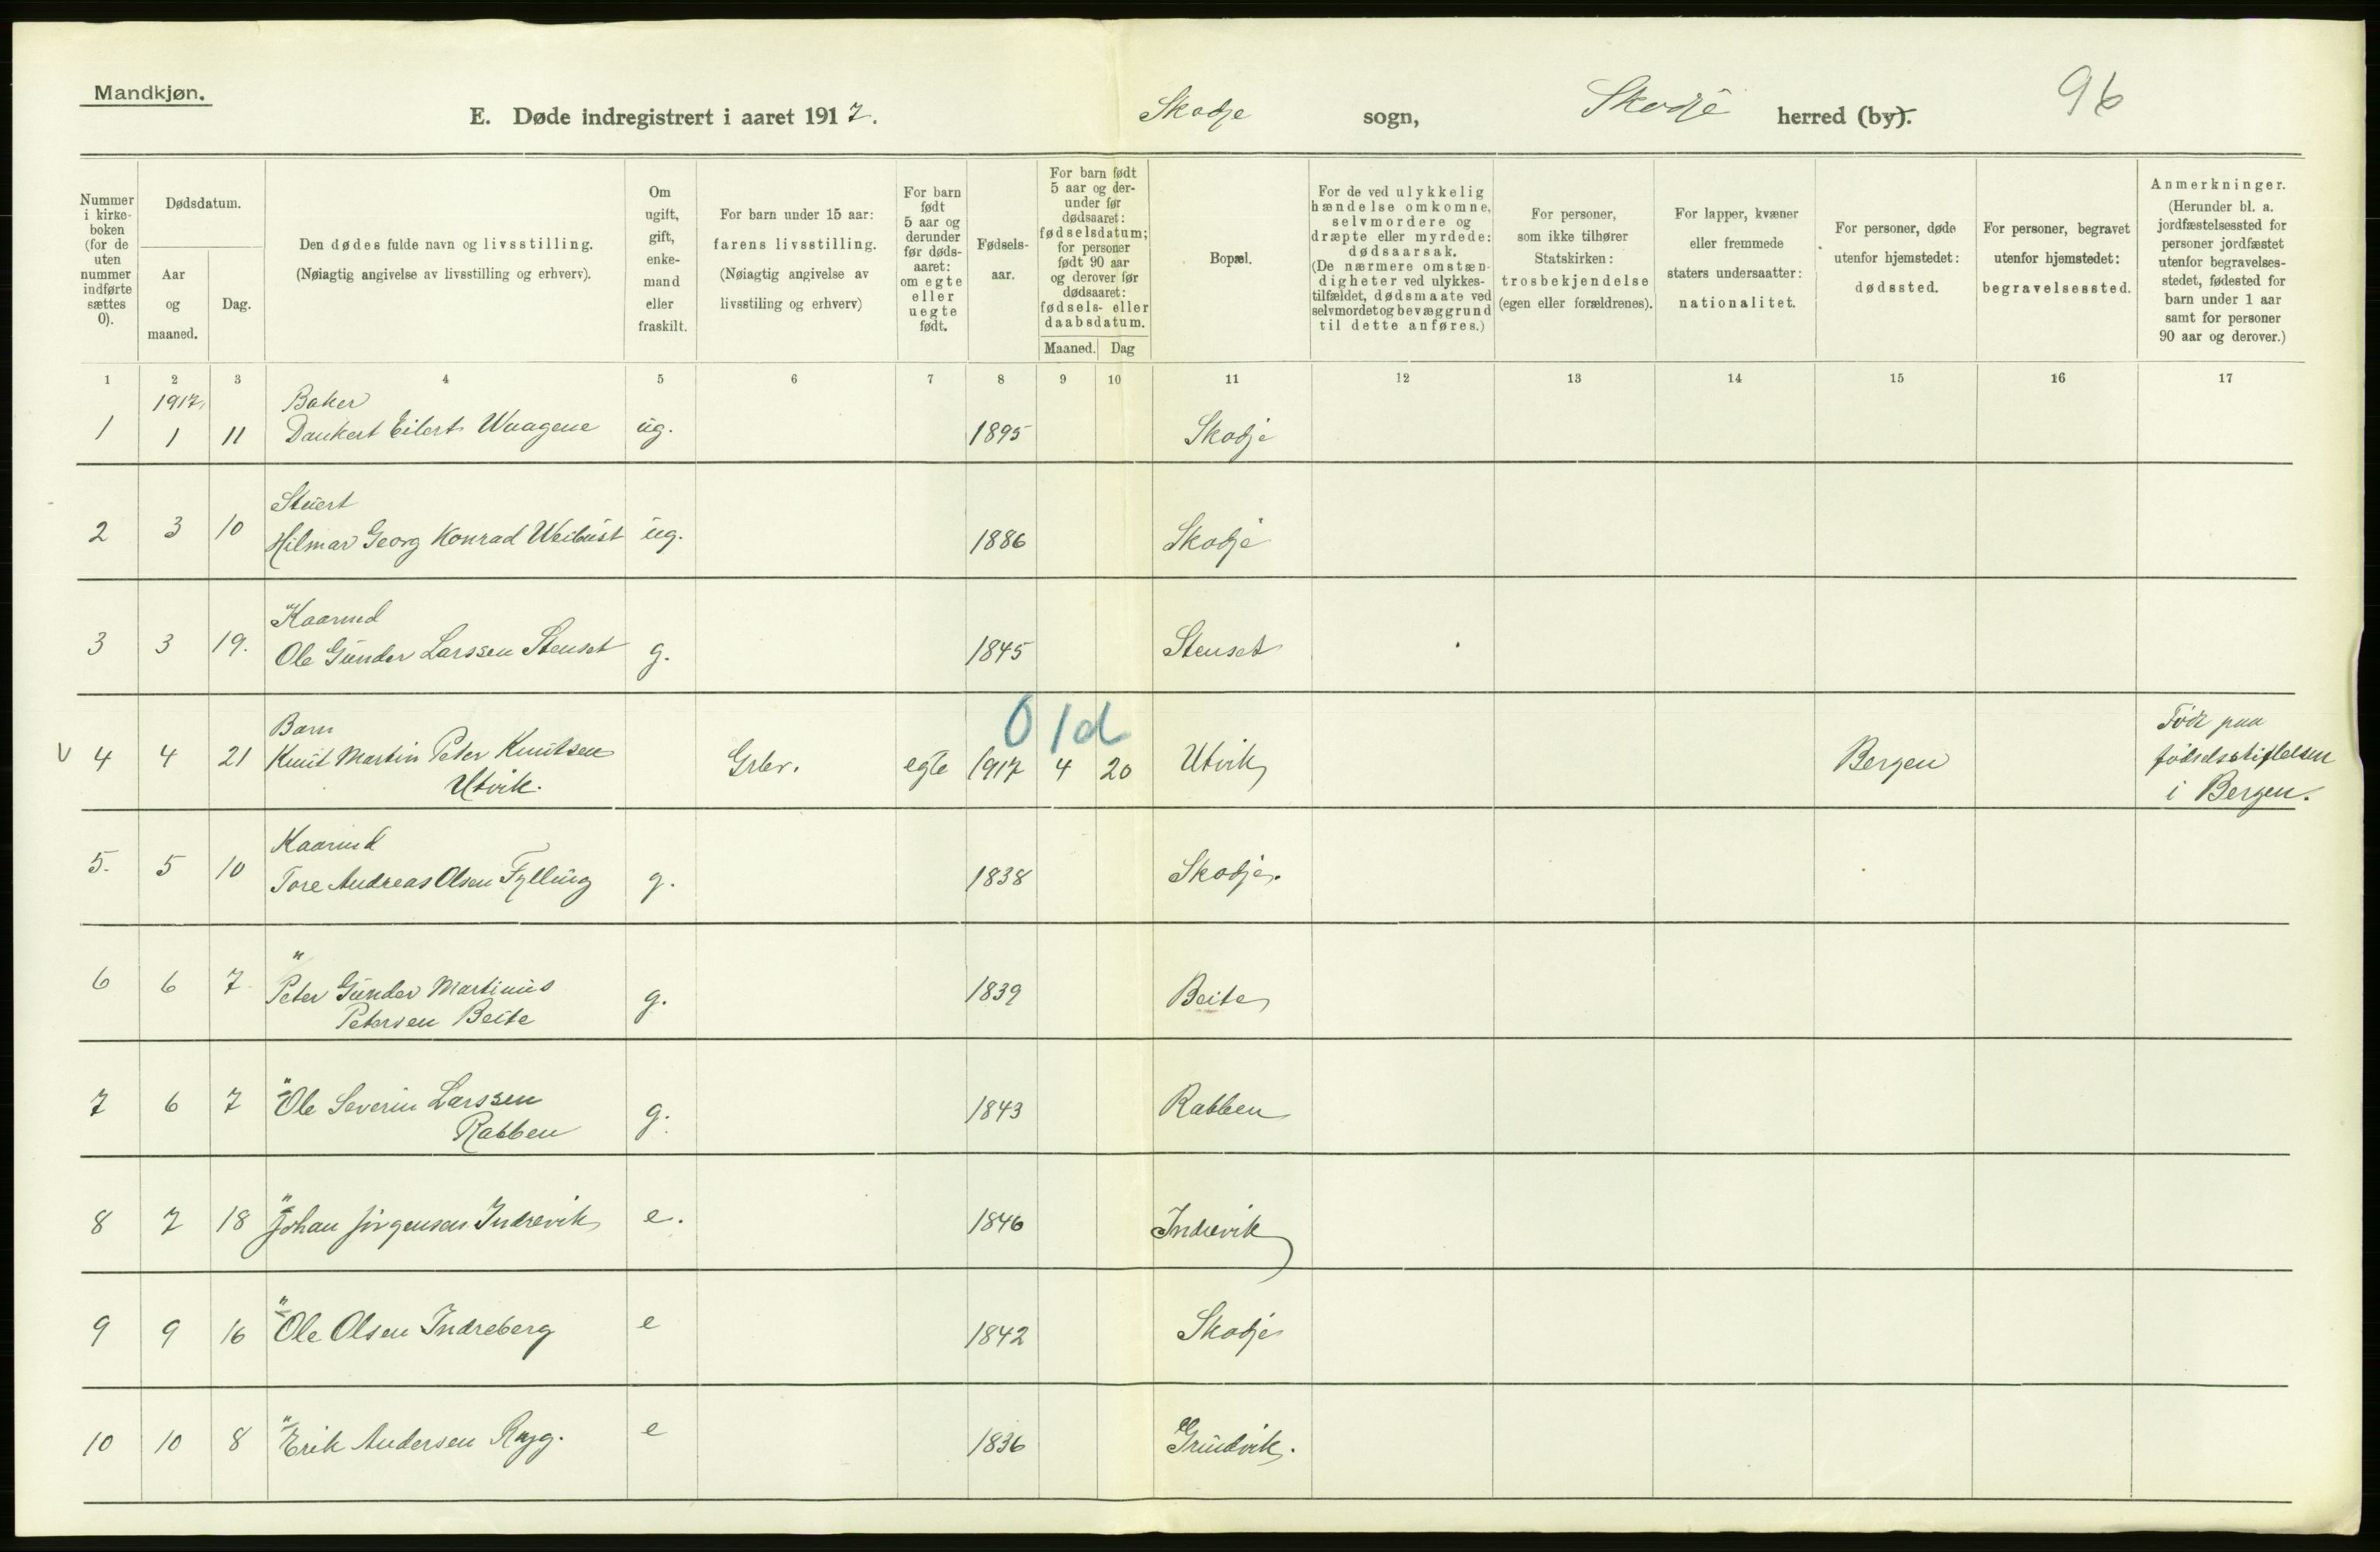 Mandkjøn.
E. Døde indregistrert i aaret 1917. Skodje sogn, Skodje herred (by). 96
Nummer i kirke-boken (for de uten nummer indførte sættes 0).
Dødsdatum.
Aar og maaned.
Dag.
Den dødes fulde navn og livsstilling.
(Nøiagtig angivelse av livsstilling og erhverv).
Om ugift, gift, enke-mand eller fraskilt.
For barn under 15 aar: farens livsstilling.
(Nøiagtig angivelse av livsstiling og erhverv)
For barn født 5 aar og derunder før døds-aaret: om egte eller uegte født.
Fødsels-aar.
For barn født 5 aar og der-under før dødsaaret: fødselsdatum; for personer født 90 aar og derover før dødsaaret: fødsels- eller daabsdatum.
Maaned. Dag
Bopæl.
For de ved ulykkelig hændelse omkomne, selvmordere og dræpte eller myrdede: dødsaarsak.
(De nærmere omstæn-digheter ved ulykkes-tilfældet, dødsmaate ved selvmordet og bevæggrund til dette anføres.)
For personer, som ikke tilhører Statskirken: trosbekjendelse (egen eller forældrenes).
For lapper, kvæner eller fremmede staters undersaatter: nationalitet.
For personer, døde utenfor hjemstedet: dødssted.
For personer, begravet utenfor hjemstedet: begravelsessted.
Anmerkninger.
(Herunder bl. a. jordfæstelsessted for personer jordfæstet utenfor begravelses-stedet, fødested for barn under 1 aar samt for personer 90 aar og derover.)
1 2 3 4 5 6 7 8 9 10 11 12 13 14 15 16 17
1917. Baker
1 1 11 Dankert Eilert Waagene ug. 1895 Skodje
Stuert
2 3 10 Hilmar Georg Konrad Weibust ug. 1886 Skodje
Kaarmd
3 3 19. Ole Gunder Larssen Stenset g. 1845 Stenset
Barn 0 1d Født paa
V 4 4 21 Knut Martin Peter Knutsen Grbr. egte 1917 4 20 Utvik Bergen fødselsstiftelsen
Utvik. i Bergen.
Kaarmd
5. 5 10 Tore Andreas Olsen Fylling g. 1838 Skodje.
"
6 6 7 Peter Gunder Martinus g. 1839 Beite
Petersen Beite
"
7 6 7 Ole Severin Larssen g. 1843 Rabben
Rabben
"
8 7 18 Johan Jørgensen Indrevik e. 1846 Indrevik
"
9 9 16 Ole Olsen Indreberg e 1842 Skodje
"
10 10 8 Erik Andersen Ryg. e 1836 Grindvik.